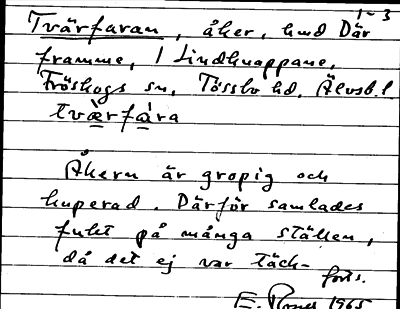 1-3
Tvärfaran, åker, hmd Där
framme, / Lindknappane,
Fröskogs sn, Tössbo hd, Älvsb. l.
tvæ̀rfára
Åkern är gropig och
kuperad. Därför samlades
fukt på många ställen,
då det ej var täck-
forts.
E. 1965